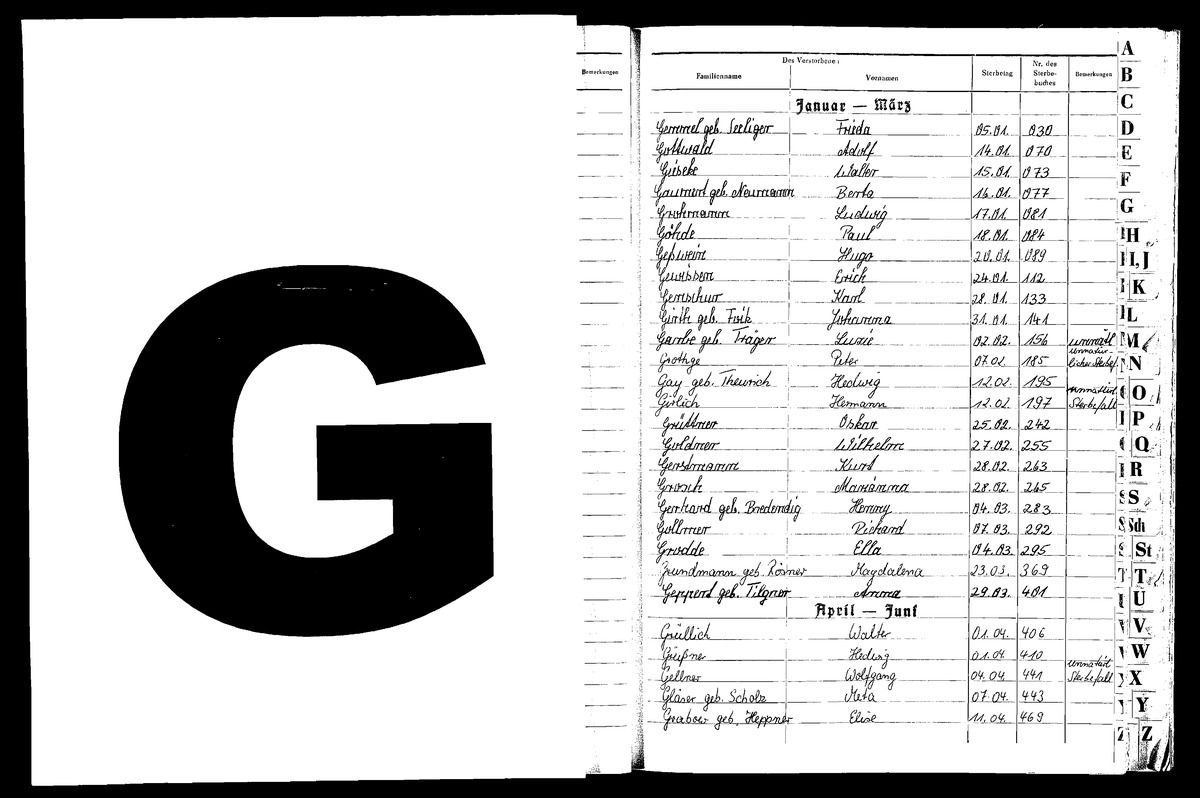 G
Bemerkungen
Des Verstorbenen
Familienname Vornamen Sterbetag Nr. des Sterbe-buches Bemerkungen
Januar — März
Gemmel geb. Seeliger Frieda 05.01. 030
Gottwald Adolf 14.01. 070
Giseke Walter 15.01. 073
geb. Neumann Berta 16.01. 077
Grohmann Ludwig 17.01. 081
Göhde Paul 18.01. 084
Geßwein Hugo 20.01. 089
Gewissen Erich 24.01. 112
Gerschur Karl 28.01. 133
Girth geb. Frik Johanna 31.01. 141
Garbe geb. Träger Luzie 02.02. 156 unnatl
Grothge Peter 07.02. 185 unnatür-licher Sterbef.
Gay geb. Theurich Hedwig 12.02. 195
Girlich Hermann 12.02. 197 unnatürl Sterbefall
Grüttner Oskar 25.02. 242
Goldner Wilhelm 27.02. 255
Gerstmann Kurt 28.02. 263
Grosch Marianna 28.02. 265
Gerhard geb. Bredendig Henny 04.03. 283
Gollmer Richard 07.03. 292
Grodde Ella 04.03. 295
Grundmann geb. Rösner Magdalena 23.03. 369
Geppert geb. Tilgner Anna 29.03. 401
April — Juni
Grüllich Walter 01.04. 406
Greißner Hedwig 01.04. 410
Gellner Wolfgang 04.04. 441 unnatürl Sterbefall
Gläser geb. Scholz Meta 07.04. 443
Grabow geb. Heppner Elise 11.04. 469
A
B
C
D
E
F
G
H
I,J
K
L
M
N
O
P
Q
R
S
Sch
St
T
U
V
W
X
Y
Z